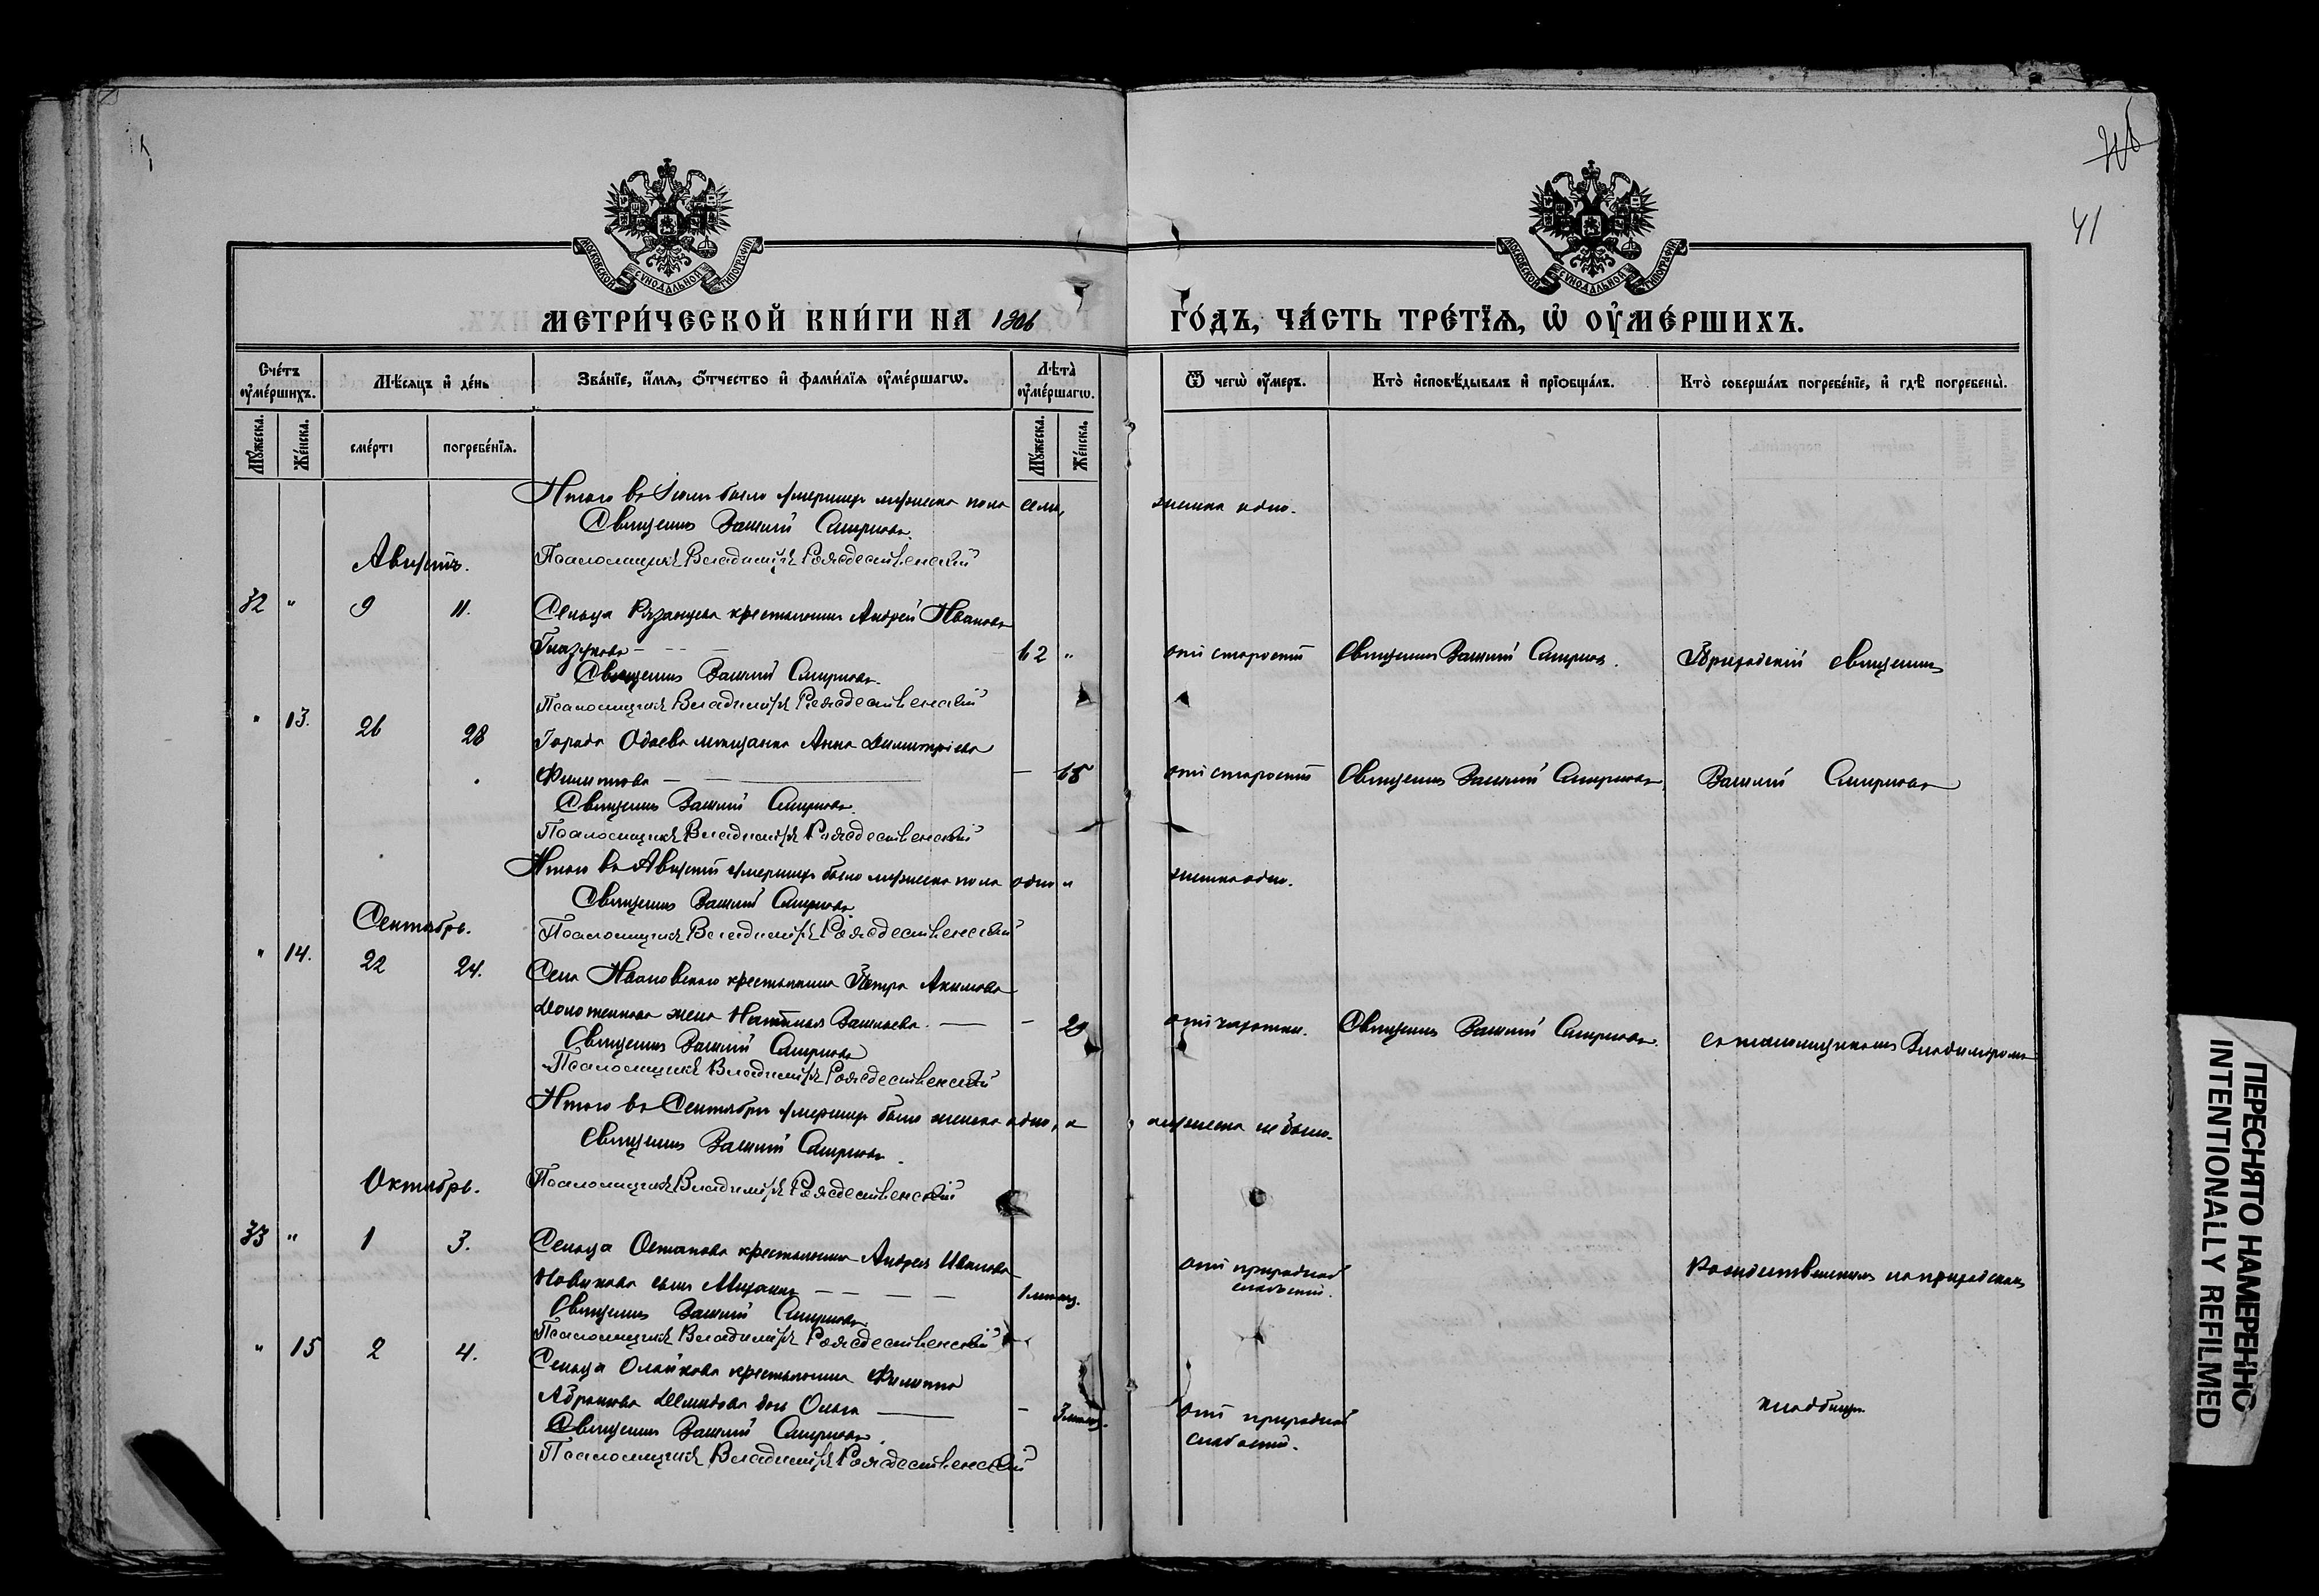 41
МОСКОВСКОЙ СУНОДАЛЬНОЙ ТИПОГРАФІИ
МОСКОВСКОЙ СУНОДАЛЬНОЙ ТИПОГРАФІИ
МЕТРИ́ЧЕСКОЙ КНИ́ГИ НА 1906 ГО́ДЪ, ЧА́СТЬ ТРЕ́ТЇѦ, Ѡ҆ ОУ҆МЕ́РШИХЪ.
Сче́тъ оу҆ме́ршихъ.
Мѣ́сѧцъ и҆ де́нь
Зва́нїе, и҆́мѧ, ѻ҆́тчество и҆ фами́лїѧ оу҆ме́ршагѡ.
Лѣ̀та̀ оу҆ме́ршагѡ.
Ѿ чегѡ̀ оу҆́меръ.
Кто̀ и҆сповѣ́дывалъ и҆ прїѡбща́лъ.
Кто̀ соверша́лъ погребе́нїе, и҆ гдѣ̀ погребены̀.
Мꙋ́жеска.
Же́нска.
сме́рті
погребе́нїѧ.
Мꙋ́жеска.
Же́нска.
Итого въ Іюлѣ было умершихъ мужеска пола семь, женска одна.
Священникъ Василій Смирновъ.
Августъ.
Псаломщикъ Владиміръ Рождественскій
32 " 9 11. Сельца Рязанцева крестьянинъ Андрей Ивановъ
Глазуновъ — 62 " отъ старости Священникъ Василій Смирновъ. Приходскій священникъ
Священникъ Василій Смирновъ.
Псаломщикъ Владиміръ Рождественскій
" 13. 26 28 Города Одоева мѣщанка Анна Димитріева
Филиппова — — 65 отъ старости Священникъ Василій Смирновъ. Василій Смирновъ
Священникъ Василій Смирновъ.
Псаломщикъ Владиміръ Рождественскій
Итого въ Августѣ умершихъ было мужеска пола одинъ и женска одна.
Священникъ Василій Смирновъ.
Сентябрь.
Псаломщикъ Владиміръ Рождественскій
" 14. 22 24. Села Ивановскаго крестьянина Петра Акимова
жена Наталья Васильева. — — 29 отъ чахотки. Священникъ Василій Смирновъ. съ псаломщикомъ Владиміромъ
Священникъ Василій Смирновъ
Псаломщикъ Владиміръ Рождественскій
Итого въ Сентябрѣ умершихъ было женска одна, а мужеска не было.
Священникъ Василій Смирновъ.
Октябрь.
Псаломщикъ Владиміръ Рождественскій
33 " 1 3. Сельца Остапова крестьянина Андрея Иванова
Новикова сынъ Михаилъ — — — — 1 мѣсяц. отъ природной слабости. Рождественскимъ на приходскомъ
Священникъ Василій Смирновъ.
Псаломщикъ Владиміръ Рождественскій
" 15 2 4. Сельца крестьянина Филиппа
Абрамова дочь Ольга — — отъ природной слабости. кладбищѣ.
Священникъ Василій Смирновъ.
Псаломщикъ Владиміръ Рождественскій
ПЕРЕСНЯТО НАМЕРЕННО
INTENTIONALLY REFILMED